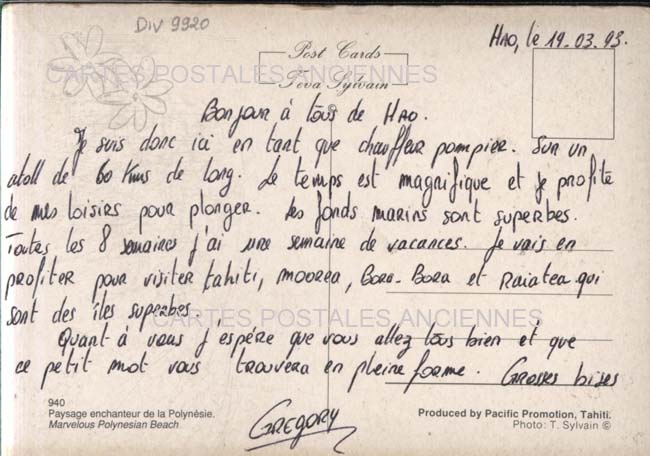 DIV 9920
Hao, le 19.03.93.
Post Cards
Teva Sylvain
CARTES POSTALES ANCIENNES
Bonjour à tous de Hao.
Je suis donc ici en tant que chauffeur pompier. Sur un
atoll de 60 Kms de long. Le temps est magnifique et je profite
de mes loisirs pour plonger. Les fonds marins sont superbes.
Toutes les 8 semaines j'ai une semaine de vacances. Je vais en
profiter pour visiter tahiti, moorea, Bora-Bora et Raiatea qui
sont des îles superbes.
CARTES POSTALES ANCIENNES
Quant à vous j'espère que vous allez tous bien et que
ce petit mot vous trouvera en pleine forme. Grosses bises
GREGORY
940
Paysage enchanteur de la Polynésie.
Marvelous Polynesian Beach
Produced by Pacific Promotion, Tahiti.
Photo: T. Sylvain ©